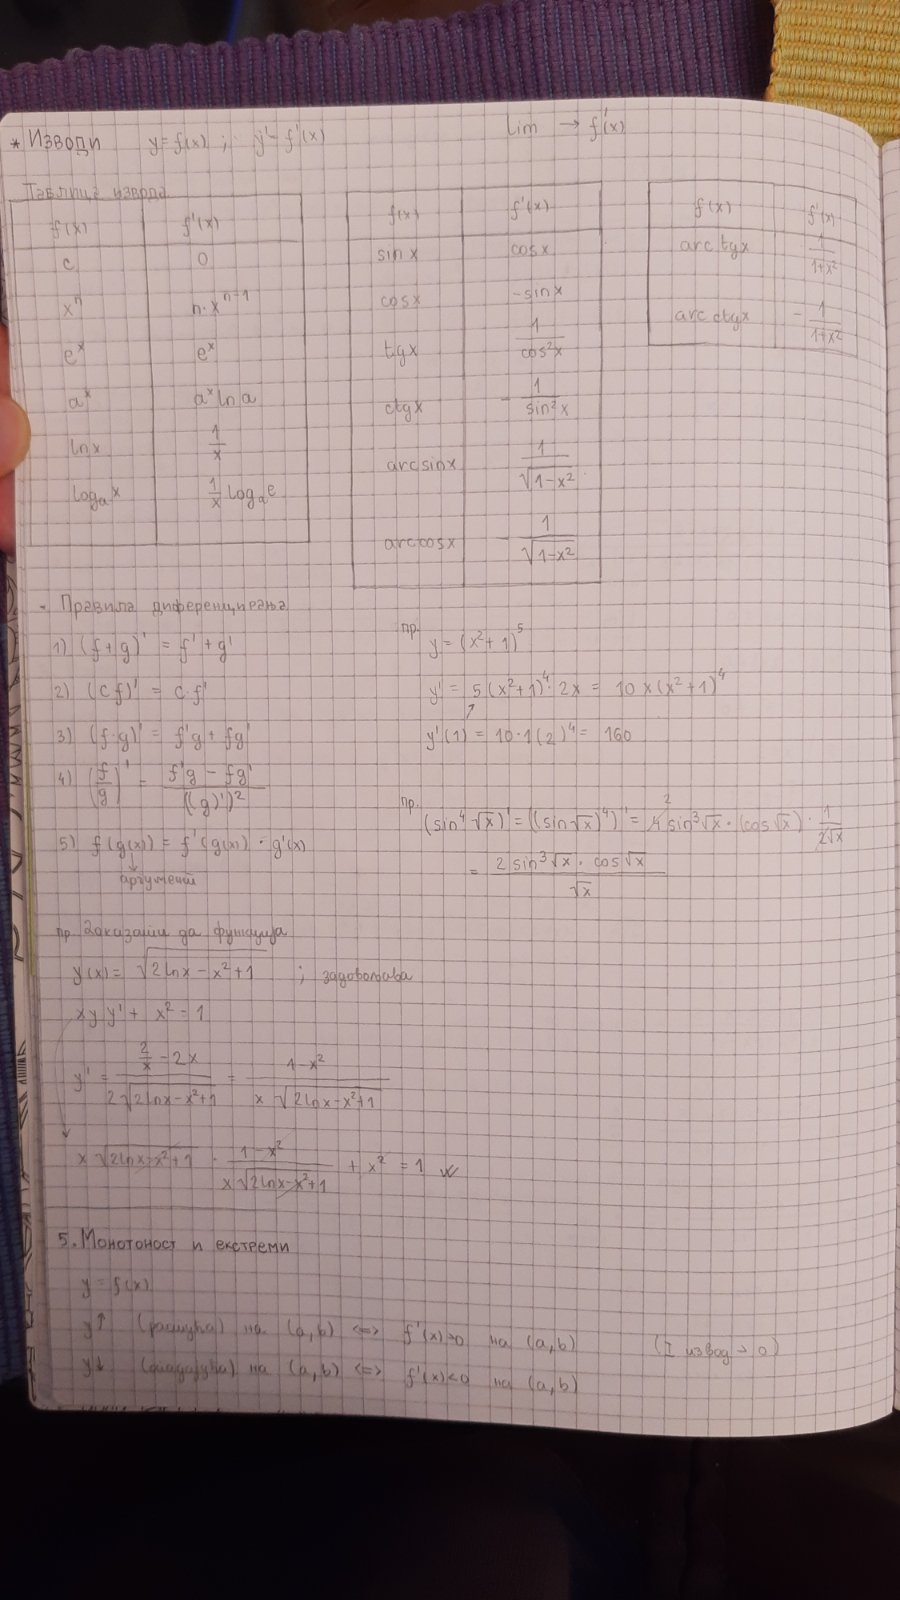 * Изводи y = f(x) ; y' = f'(x) lim → f'(x)
Таблица извода
f(x) f'(x)
c 0
xⁿ n·xⁿ⁻¹
eˣ eˣ
aˣ aˣ ln a
ln x 1/x
logₐx 1/x logₐe
f(x) f'(x)
sin x cos x
cos x -sin x
tg x 1/cos²x
ctg x - 1/sin²x
arcsin x 1/√(1-x²)
arccos x - 1/√(1-x²)
f(x) f'(x)
arc tg x 1/(1+x²)
arc ctg x - 1/(1+x²)
- Правила диференцирања
1) (f+g)' = f' + g'
2) (cf)' = c·f'
3) (f·g)' = f'g + fg'
4) (f/g)' = (f'g - fg')/((g)')²
5) f(g(x)) = f'(g(x)) · g'(x)
аргумент
пр. y = (x²+1)⁵
y' = 5(x²+1)⁴ · 2x = 10x(x²+1)⁴
y'(1) = 10·1(2)⁴ = 160
пр. (sin⁴√x)' = ((sin√x)⁴)' = 4 2 sin³√x · (cos√x) · 1/(2√x)
= (2 sin³√x · cos√x)/√x
пр. Доказати да функција
y(x) = √(2lnx - x² + 1) ; задовољава
xyy' + x² = 1
y' = (2/x - 2x)/(2√(2lnx-x²+1)) = (1-x²)/(x√(2lnx-x²+1))
x√(2lnx-x²+1) · (1-x²)/(x√(2lnx-x²+1)) + x² = 1
5. Монотоност и екстреми
y = f(x)
y↑ (растућа) на (a,b) <=> f'(x)>0 на (a,b) (I извод → 0)
y↓ (опадајућа) на (a,b) <=> f'(x)<0 на (a,b)